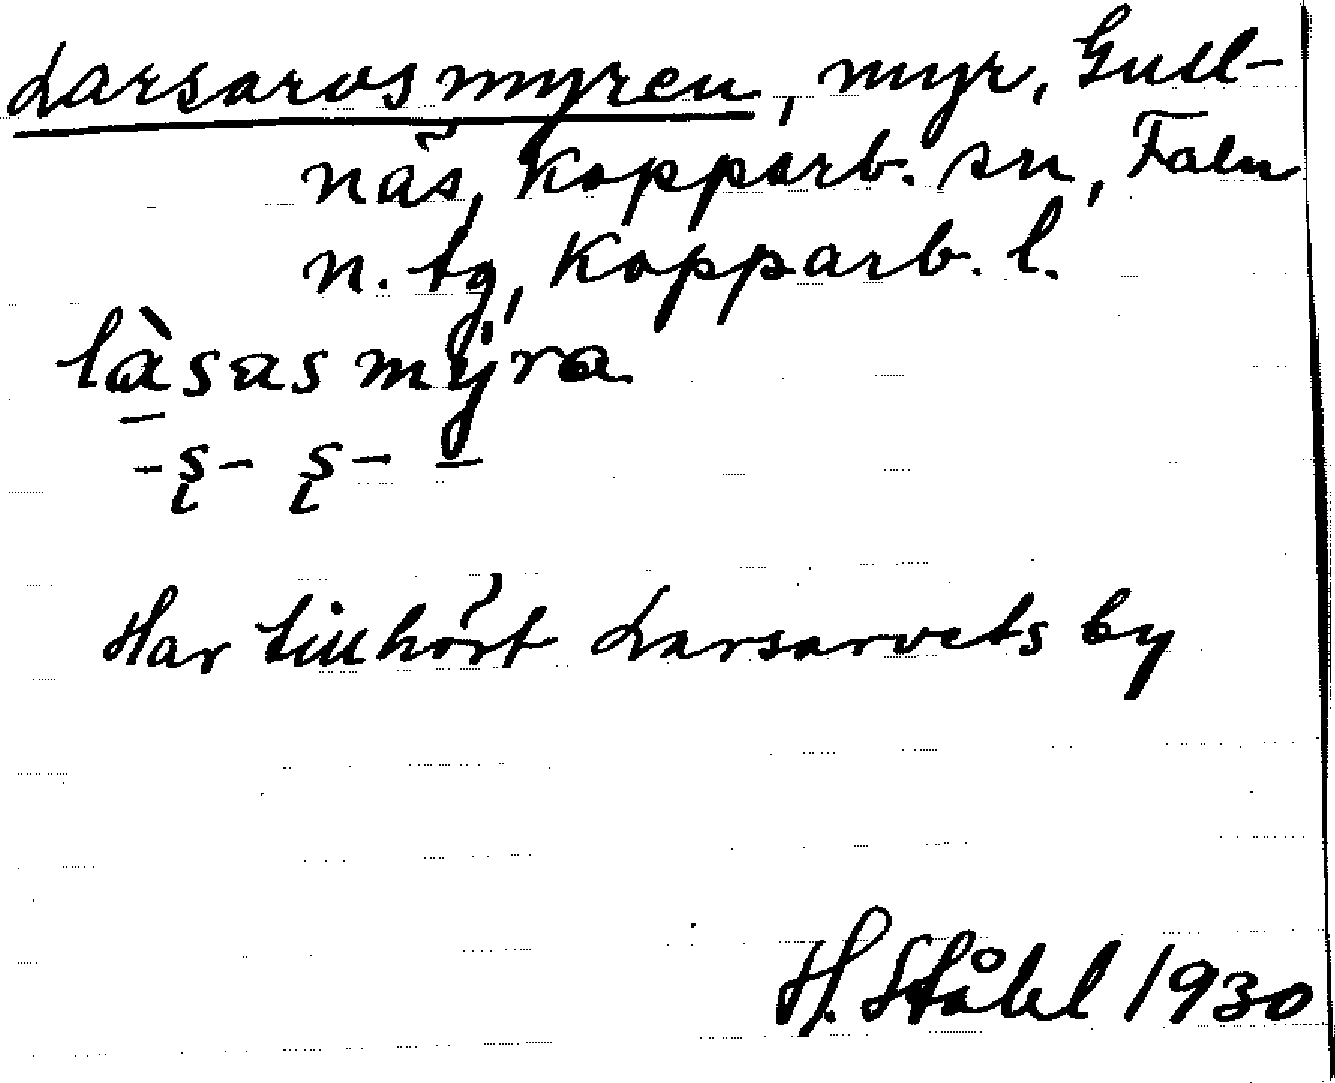 Larsarvsmyren, myr, Gull-
näs, Kopparb. sn, Falu
n. tg, Kopparb. l.
làsasmyra
-ș- ș- -
Har tillhört Larsarvets by
H. Ståhl 1930